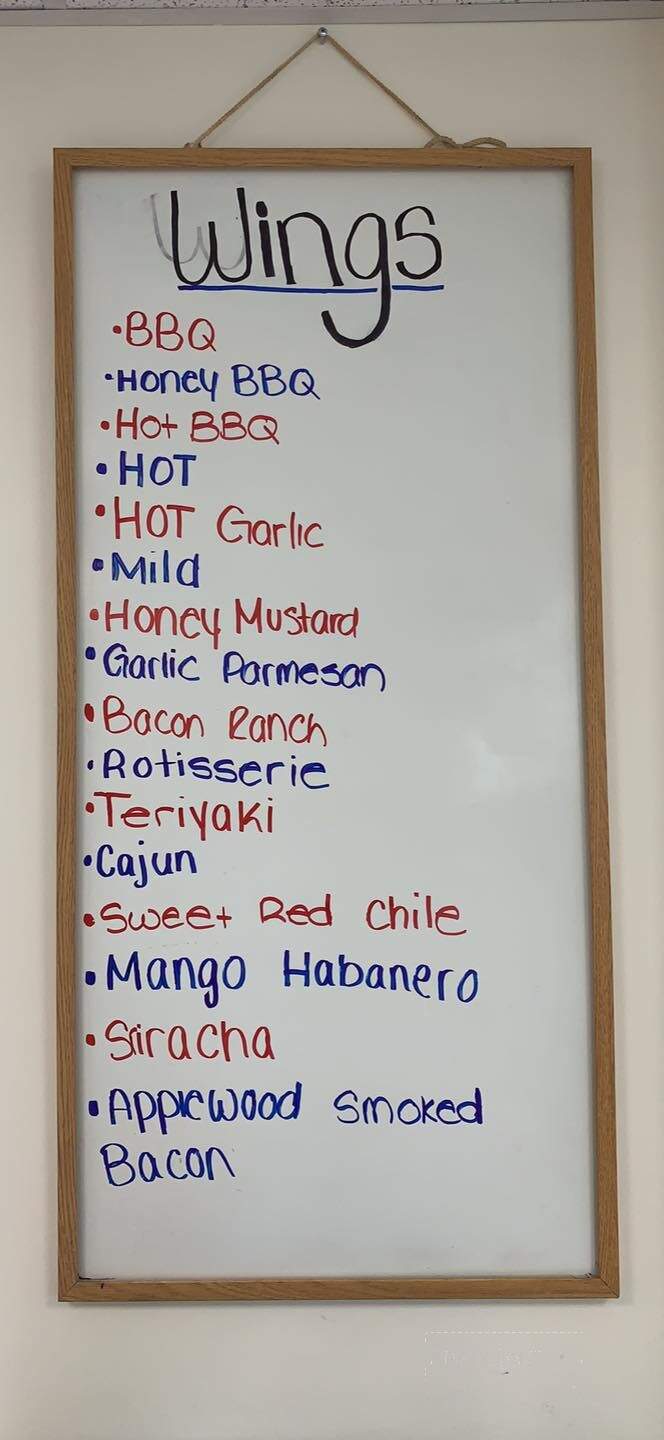 Wings
•BBQ
•Honey BBQ
•Hot BBQ
•HOT
•HOT Garlic
•Mild
•Honey Mustard
•Garlic Parmesan
•Bacon Ranch
•Rotisserie
•Teriyaki
•Cajun
•Sweet Red Chile
•Mango Habanero
•Sriracha
•Applewood Smoked
Bacon